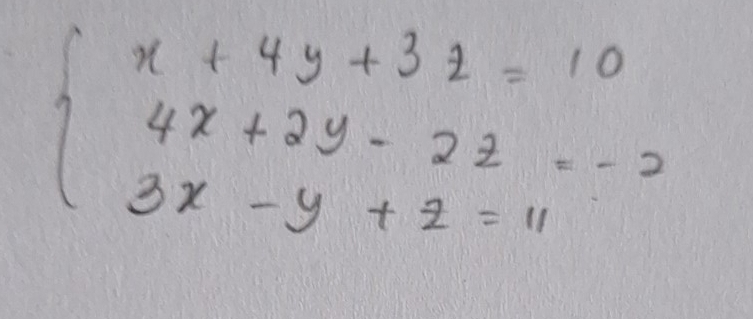 x + 4y + 3z = 10
4x + 2y - 2z = -2
3x - y + z = 11